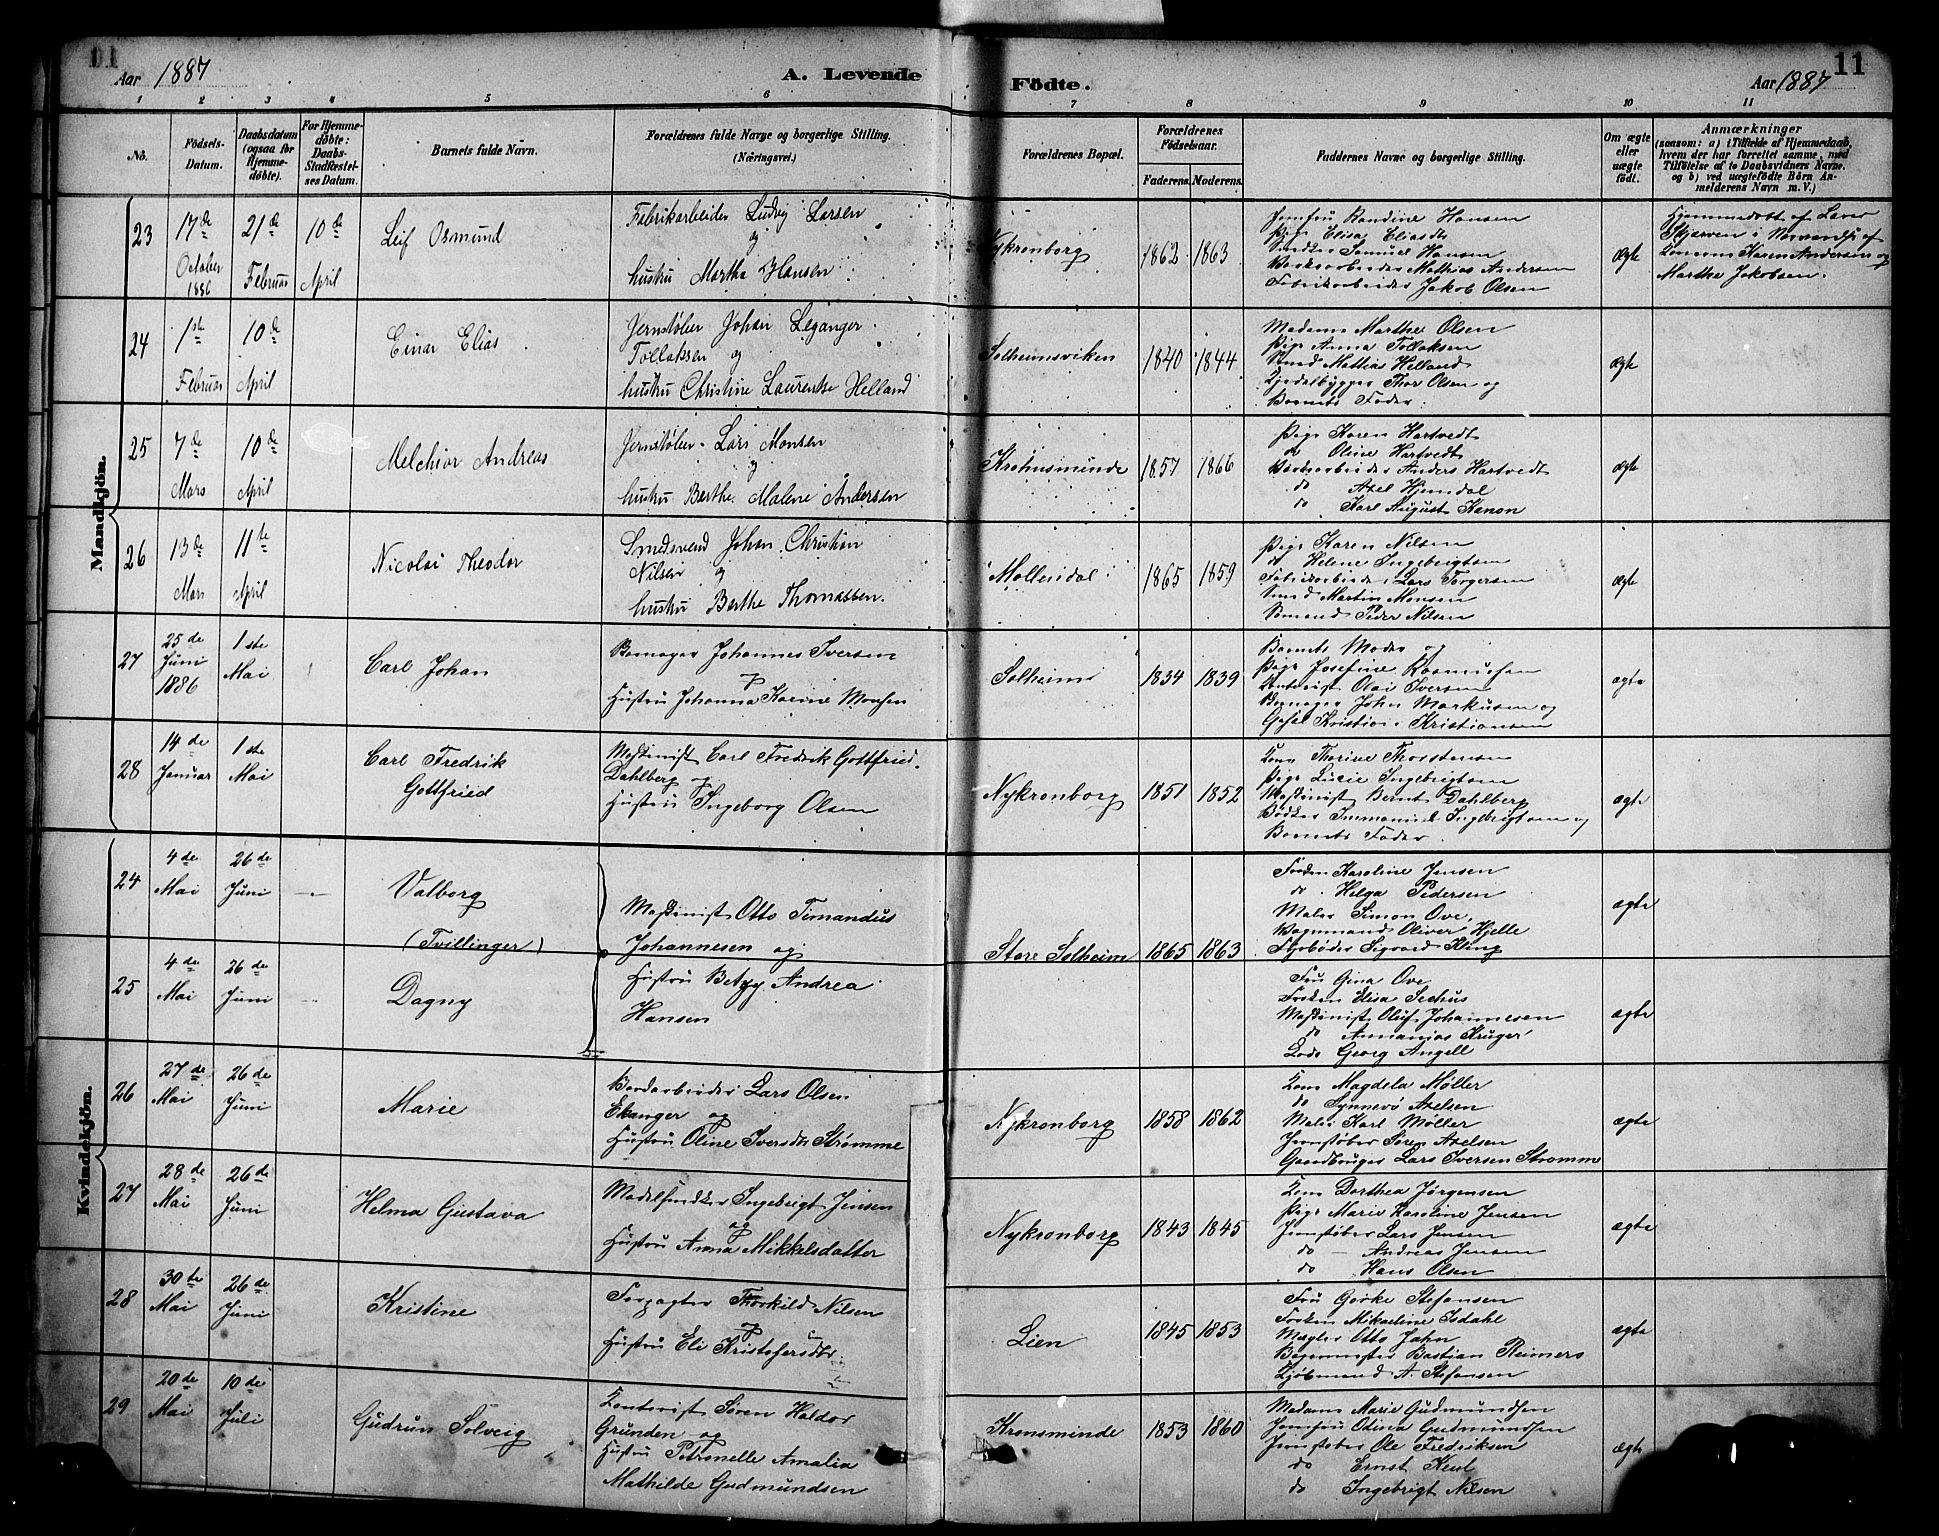 11
Aar 1887
A. Levende Födte.
Aar 1887
11
1 2 3 4 5 6 7 8 9 10 11
No.
Födsels-Datum.
Daabsdatum (ogsaa for Hjemme-döbte).
For Hjemme-döbte: Daabs-Stadfæstel-ses Datum.
Barnets fulde Navn.
Forældrenes fulde Navne og borgerlige Stilling.
(Næringsvei.)
Forældrenes Bopæl.
Forældrenes Födselsaar.
Faderens. Moderens.
Faddernes Navne og borgerlige Stilling.
Om ægte eller uægte födt.
Anmærkninger
(saasom: a) i Tilfælde af Hjemmedaab, hvem der har forrettet samme, med Tilföielse af to Daabsvidners Navne, og b) ved uægtefödte Börn An-melderens Navn m. V.)
Mandkjön.
23
17de October 1886
21de Februar
10de April
Leif Osmund
Fabrikarbeider Ludvig Larsen
og
hustru Marthe Hansen
Nykronborg
1862 1863
Jomfru Randine Hansen
Pige Elisa Eliasdt
Samuel Hansen
Mathias Andersen
Fabrikarbeider Jakob Olsen
ægte
Hjemmedøbt af
Karen Andersen og
Marthe Jakobsen.
24
1ste Februar
10de April
Einar Elias
Jernstøber Johan Leganger
Tollaksen og
hustru Christine Laurentse Helland
Solheimsviken
1840 1844
Madame Marthe Olsen
Pige Anna Tollaksen
Smed Mathias Helland
Kjedelbygger Thor Olsen og
Barnets Fader.
ægte
25
7de Mars
10de April
Melchior Andreas
Jernstøber Lars Monsen
og
hustru Berthe Malene Andersen
Krohnsminde
1857 1866
Pige Karen Hartvedt
do Oline Hartvedt
Anders Hartvedt
do Axel Hjemdal
do Karl August Hanon
ægte
26
13de Mars
11te April
Nicolai Theodor
Smedsvend Johan Christian
Nilsen og
hustru Berthe Thomassen.
Møllendal
1865 1859
Pige Karen Nilsen
do Helene Ingebrigtsen
Fabrikarbeider Lars Torgersen
Smed Martin Monsen
Sømand Peder Nilsen
ægte
27
25de Juni 1886
1ste Mai
Carl Johan
Johannes Iversen
og
Hustru Johanna Karine Monsen
Solheim
1834 1839
Barnets Moder og
Pige Josefine Rasmussen
Kontorist Olai Iversen
John Markusen og
Kristian Kristiansen
ægte
28
14de Januar
1ste Mai
Carl Fredrik
Gottfried
Maskinist Carl Fredrik Gottfried
Dahlberg og
Hustru Ingeborg Olsen
Nykronborg
1851 1852
Kone Thorine Thorstensen
Pige Lucie Ingebrigtsen
Maskinist Bernt Dahlberg
Bødker Immanuel Ingebrigtsen og
Barnets Fader.
ægte
Kvindekjön.
24
4de Mai
26de Juni
Valborg
(Tvillinger)
Maskinist Otto Timandus
Johannesen og
Hustru Betzy Andrea
Hansen
Store Solheim
1865 1863
Frøken Karoline Jensen
do Helga Pedersen
Maler Simon Ove,
Oliver Hjelle
Fyrbøder Sigvard Kling
ægte
25
4de Mai
26de Juni
Dagny
Fru Gina Ove
Frøken Elisa Sechus
Maskinist Oluf Johannesen
do Annanias Krüger
Lods Georg Angell
ægte
26
27de Mai
26de Juni
Marie
Lars Olsen
Ekanger og
Hustru Oline Iversdtr Strømme
Nykronborg
1858 1862
Kone Magdela Møller
do Synnevö Axelsen
Maler Karl Møller
Jernstøber Søren Axelsen
Gaardbruger Lars Iversen Strømme
ægte
27
28de Mai
26de Juni
Helma Gustava
Modelsnedker Ingebrigt Jensen
og
Hustru Anna Mikkelsdatter
Nykronborg
1843 1845
Kone Dorthea Jørgensen
Pige Marie Karoline Jensen
Jernstøber Lars Jensen
do Andreas Jensen
do Hans Olsen
ægte
28
30te Mai
26de Juni
Kristine
Forpagter Thorkild Nilsen
og
Hustru Eli Kristofersdtr.
Lien
1845 1853
Fru Gerke Stefansen
Frøken Mikaeline Isdahl
Mægler Otto Jahn
Bagermester Bastian Reimers
Kjøbmand A. Stefansen
ægte
29
20de Mai
10de Juli
Gudrun Solveig
Kontorist Søren Haldor
Grunden og
Hustru Petronelle Amalia
Mathilde Gudmundsen
Kronsminde
1853 1860
Madame Marie Gudmundsen
Jomfru Odina Gudmundsen
Jernstøber Ole Fredriksen
do Ernst Keul
do Ingebrigt Nilsen
ægte